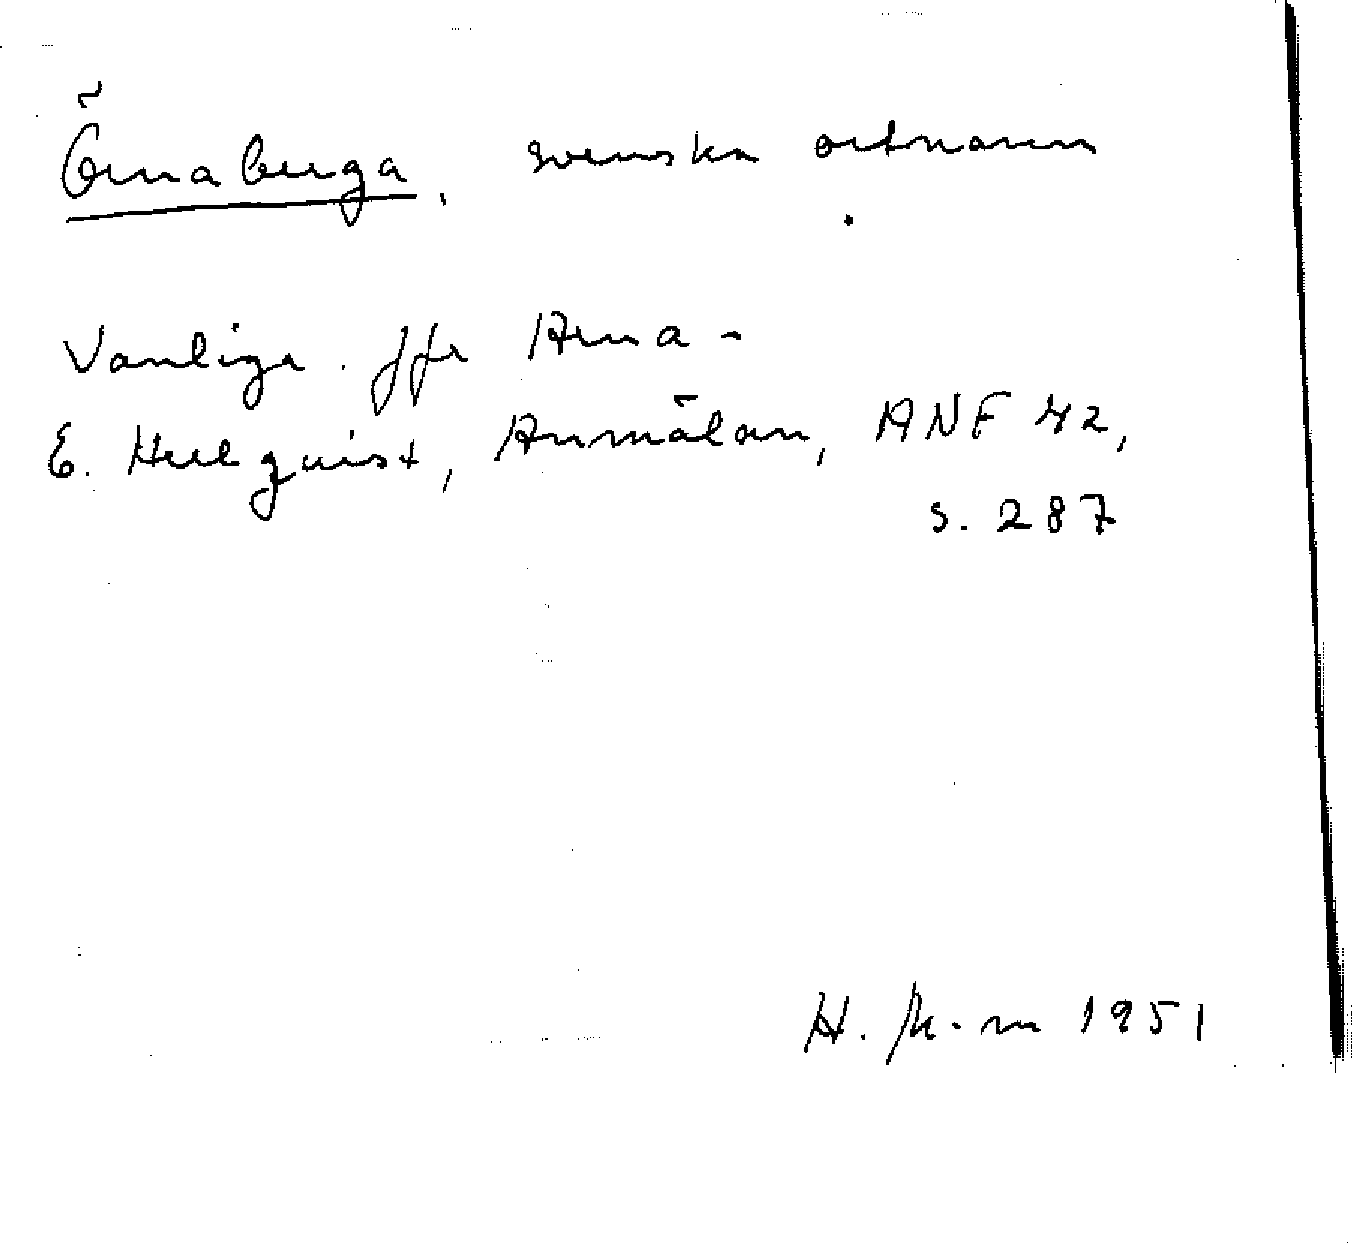 Örnaberga, svenska ortnamn
Vanliga. Jfr Arna-
E. Hellquist, Anmälan, ANF 42,
s. 287
H. 1951